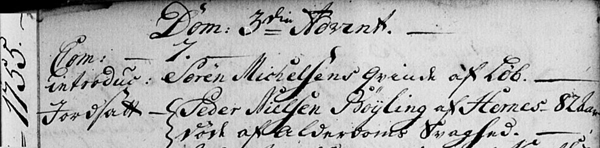 1755.
Dom: 3tia Advent.
Com: — 7. —
introduc: Sören Michelsens Qvinde af Löb. —
Jordsatt — Peder Nielsen Böyling af Hornes 82 aar
döde af Alderdoms Svaghed. —